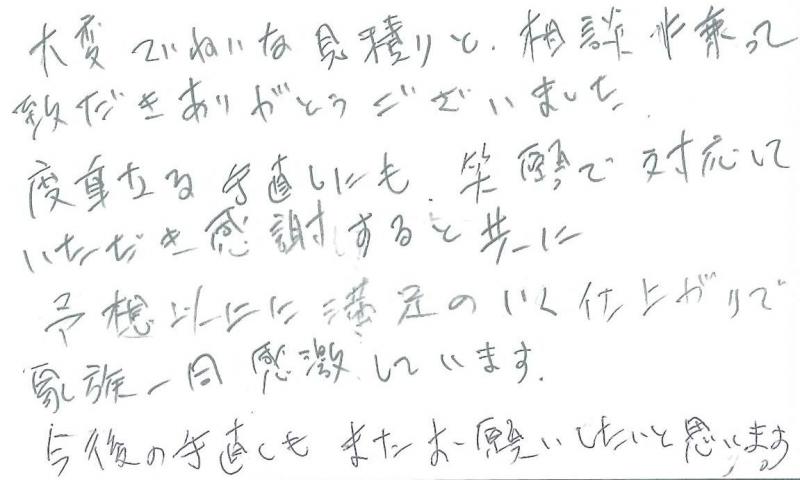 大変ていねいな見積りと、相談に乗って
致だきありがとうございました
度重なる手直しにも、笑顔で対応して
いただき感謝すると共に
予想以上に満足のいく仕上がりで
家族一同感激しています.
今後の手直しもまたお願いしたいと思います。